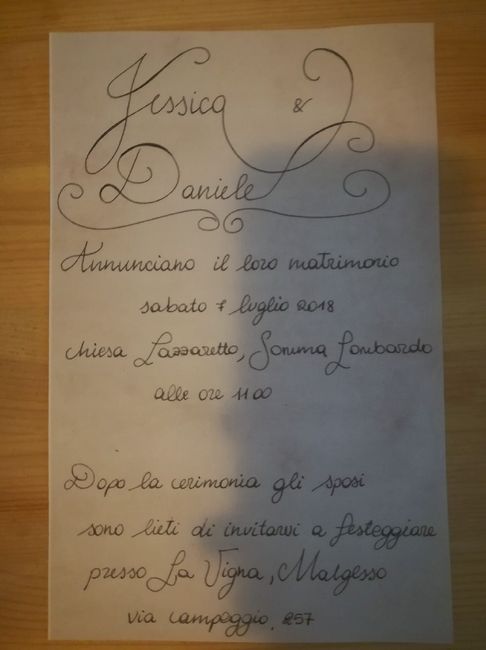 Jessica &
Daniele
Annunciano il loro matrimonio
sabato 7 luglio 2018
chiesa Lazzaretto, Somma Lombardo
alle ore 11 00
Dopo la cerimonia gli sposi
sono lieti di invitarvi a festeggiare
presso La Vigna, Malgesso
via campeggio, 257